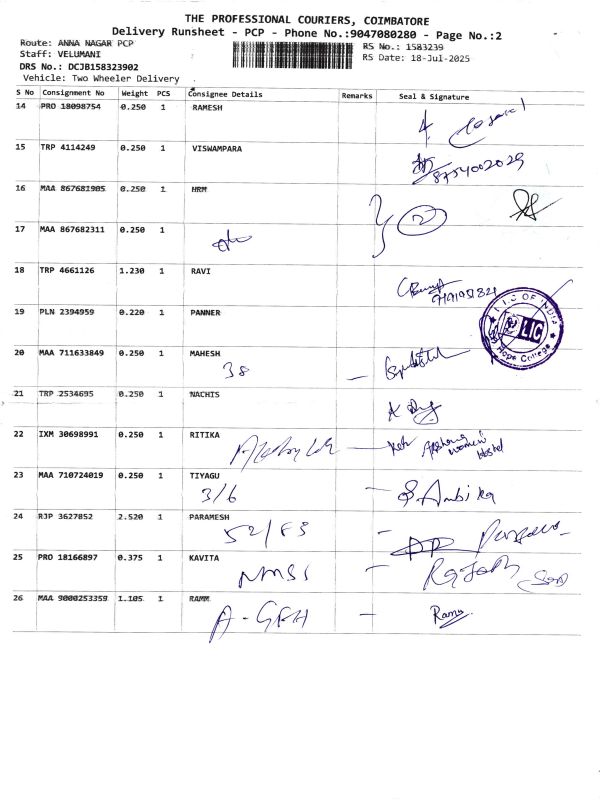 THE PROFESSIONAL COURIERS, COIMBATORE
Delivery Runsheet - PCP - Phone No.:9047080280 - Page No.:2
Route: ANNA NAGAR PCP RS No.: 1583239
Staff: VELUMANI RS Date: 18-Jul-2025
DRS No.: DCJB158323902
Vehicle: Two Wheeler Delivery
S No Consignment No Weight PCS Consignee Details Remarks Seal & Signature
14 PRO 18098754 0.250 1 RAMESH
15 TRP 4114249 0.250 1 VISWAMPARA
8754002029
16 MAA 867681905 0.250 1 HRM
17 MAA 867682311 0.250 1
18 TRP 4661126 1.230 1 RAVI
19 PLN 2394959 0.220 1 PANNER
L.I.C OF INDIA
LIC
Hope College
20 MAA 711633849 0.250 1 MAHESH
38
21 TRP 2534695 0.250 1 NACHIS
22 IXM 30698991 0.250 1 RITIKA
women
Hostel
23 MAA 710724019 0.250 1 TIYAGU
3/6 S. Ambika
24 RJP 3627852 2.520 1 PARAMESH
52/83
25 PRO 18166897 0.375 1 KAVITA
NMSS
26 MAA 9000253359 1.105 1 RAMM
Ramu